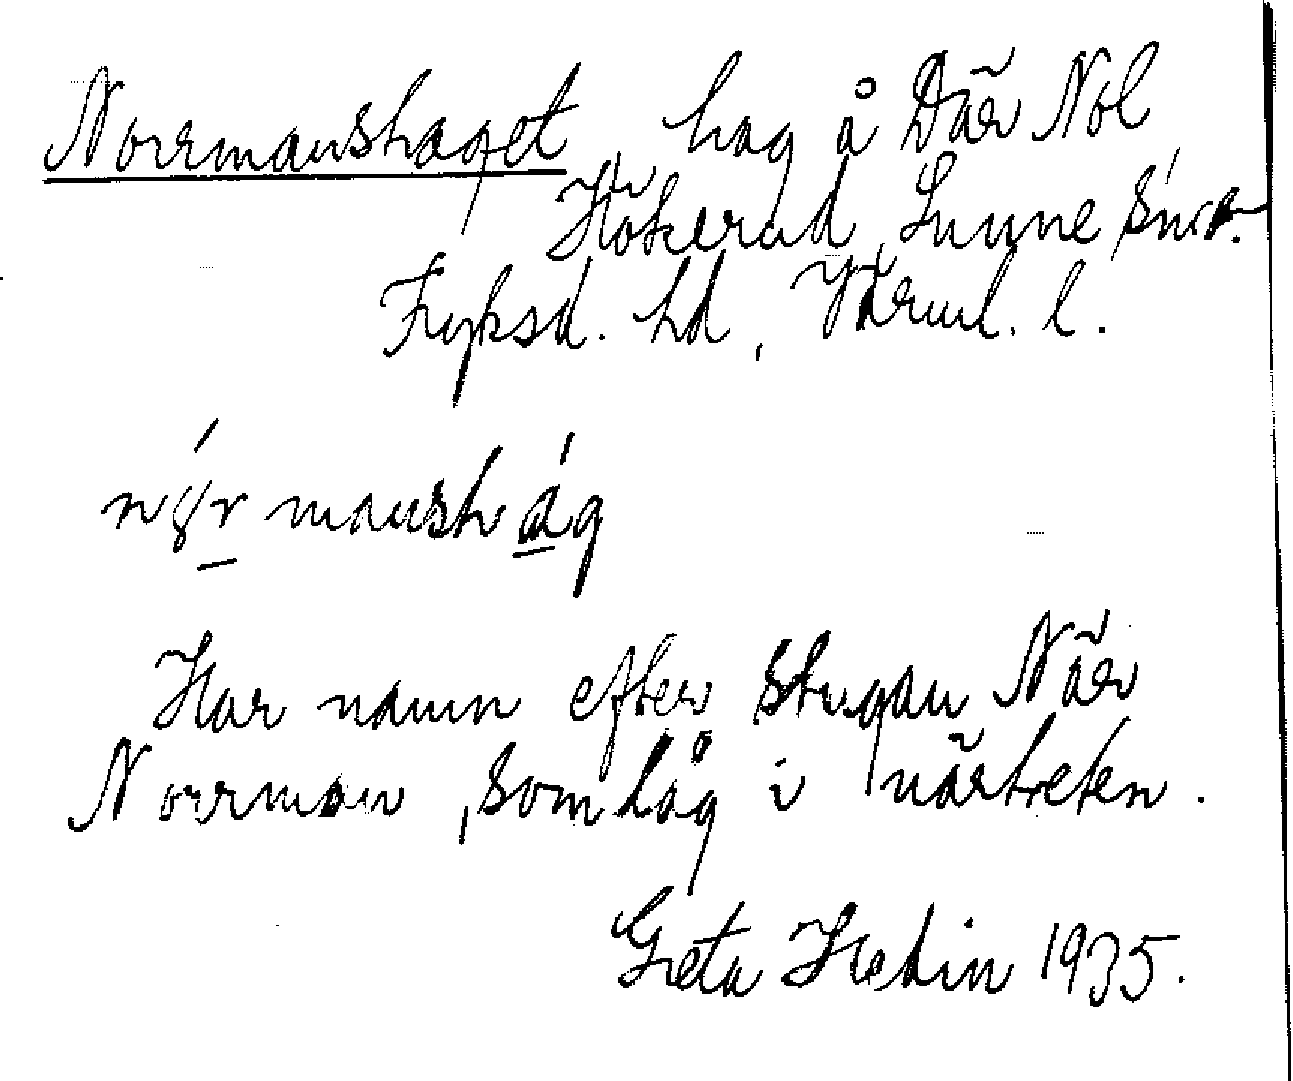 Norrmanshaget, hag å Där Nol
Hökerud, Sunne snr.
Fryksd. hd, Värml. l.
manshag
Har namn efter stugan När
Norrman, som låg i närheten.
Greta Hedin 1935.